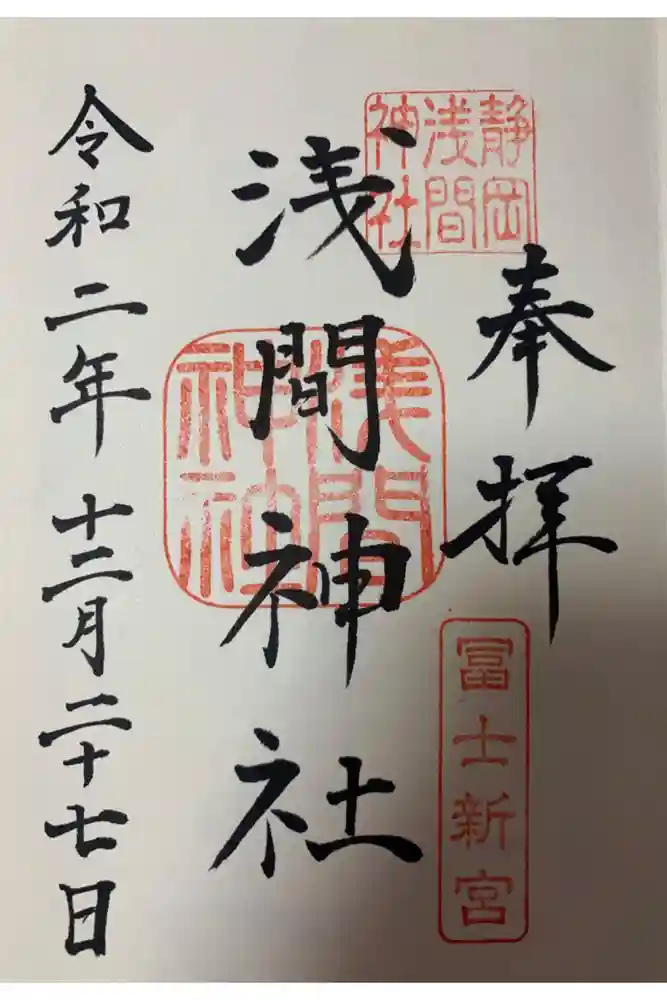 奉拝
静岡
浅間
神社
冨士新宮
浅間神社
浅間
神社
令和二年十二月二十七日